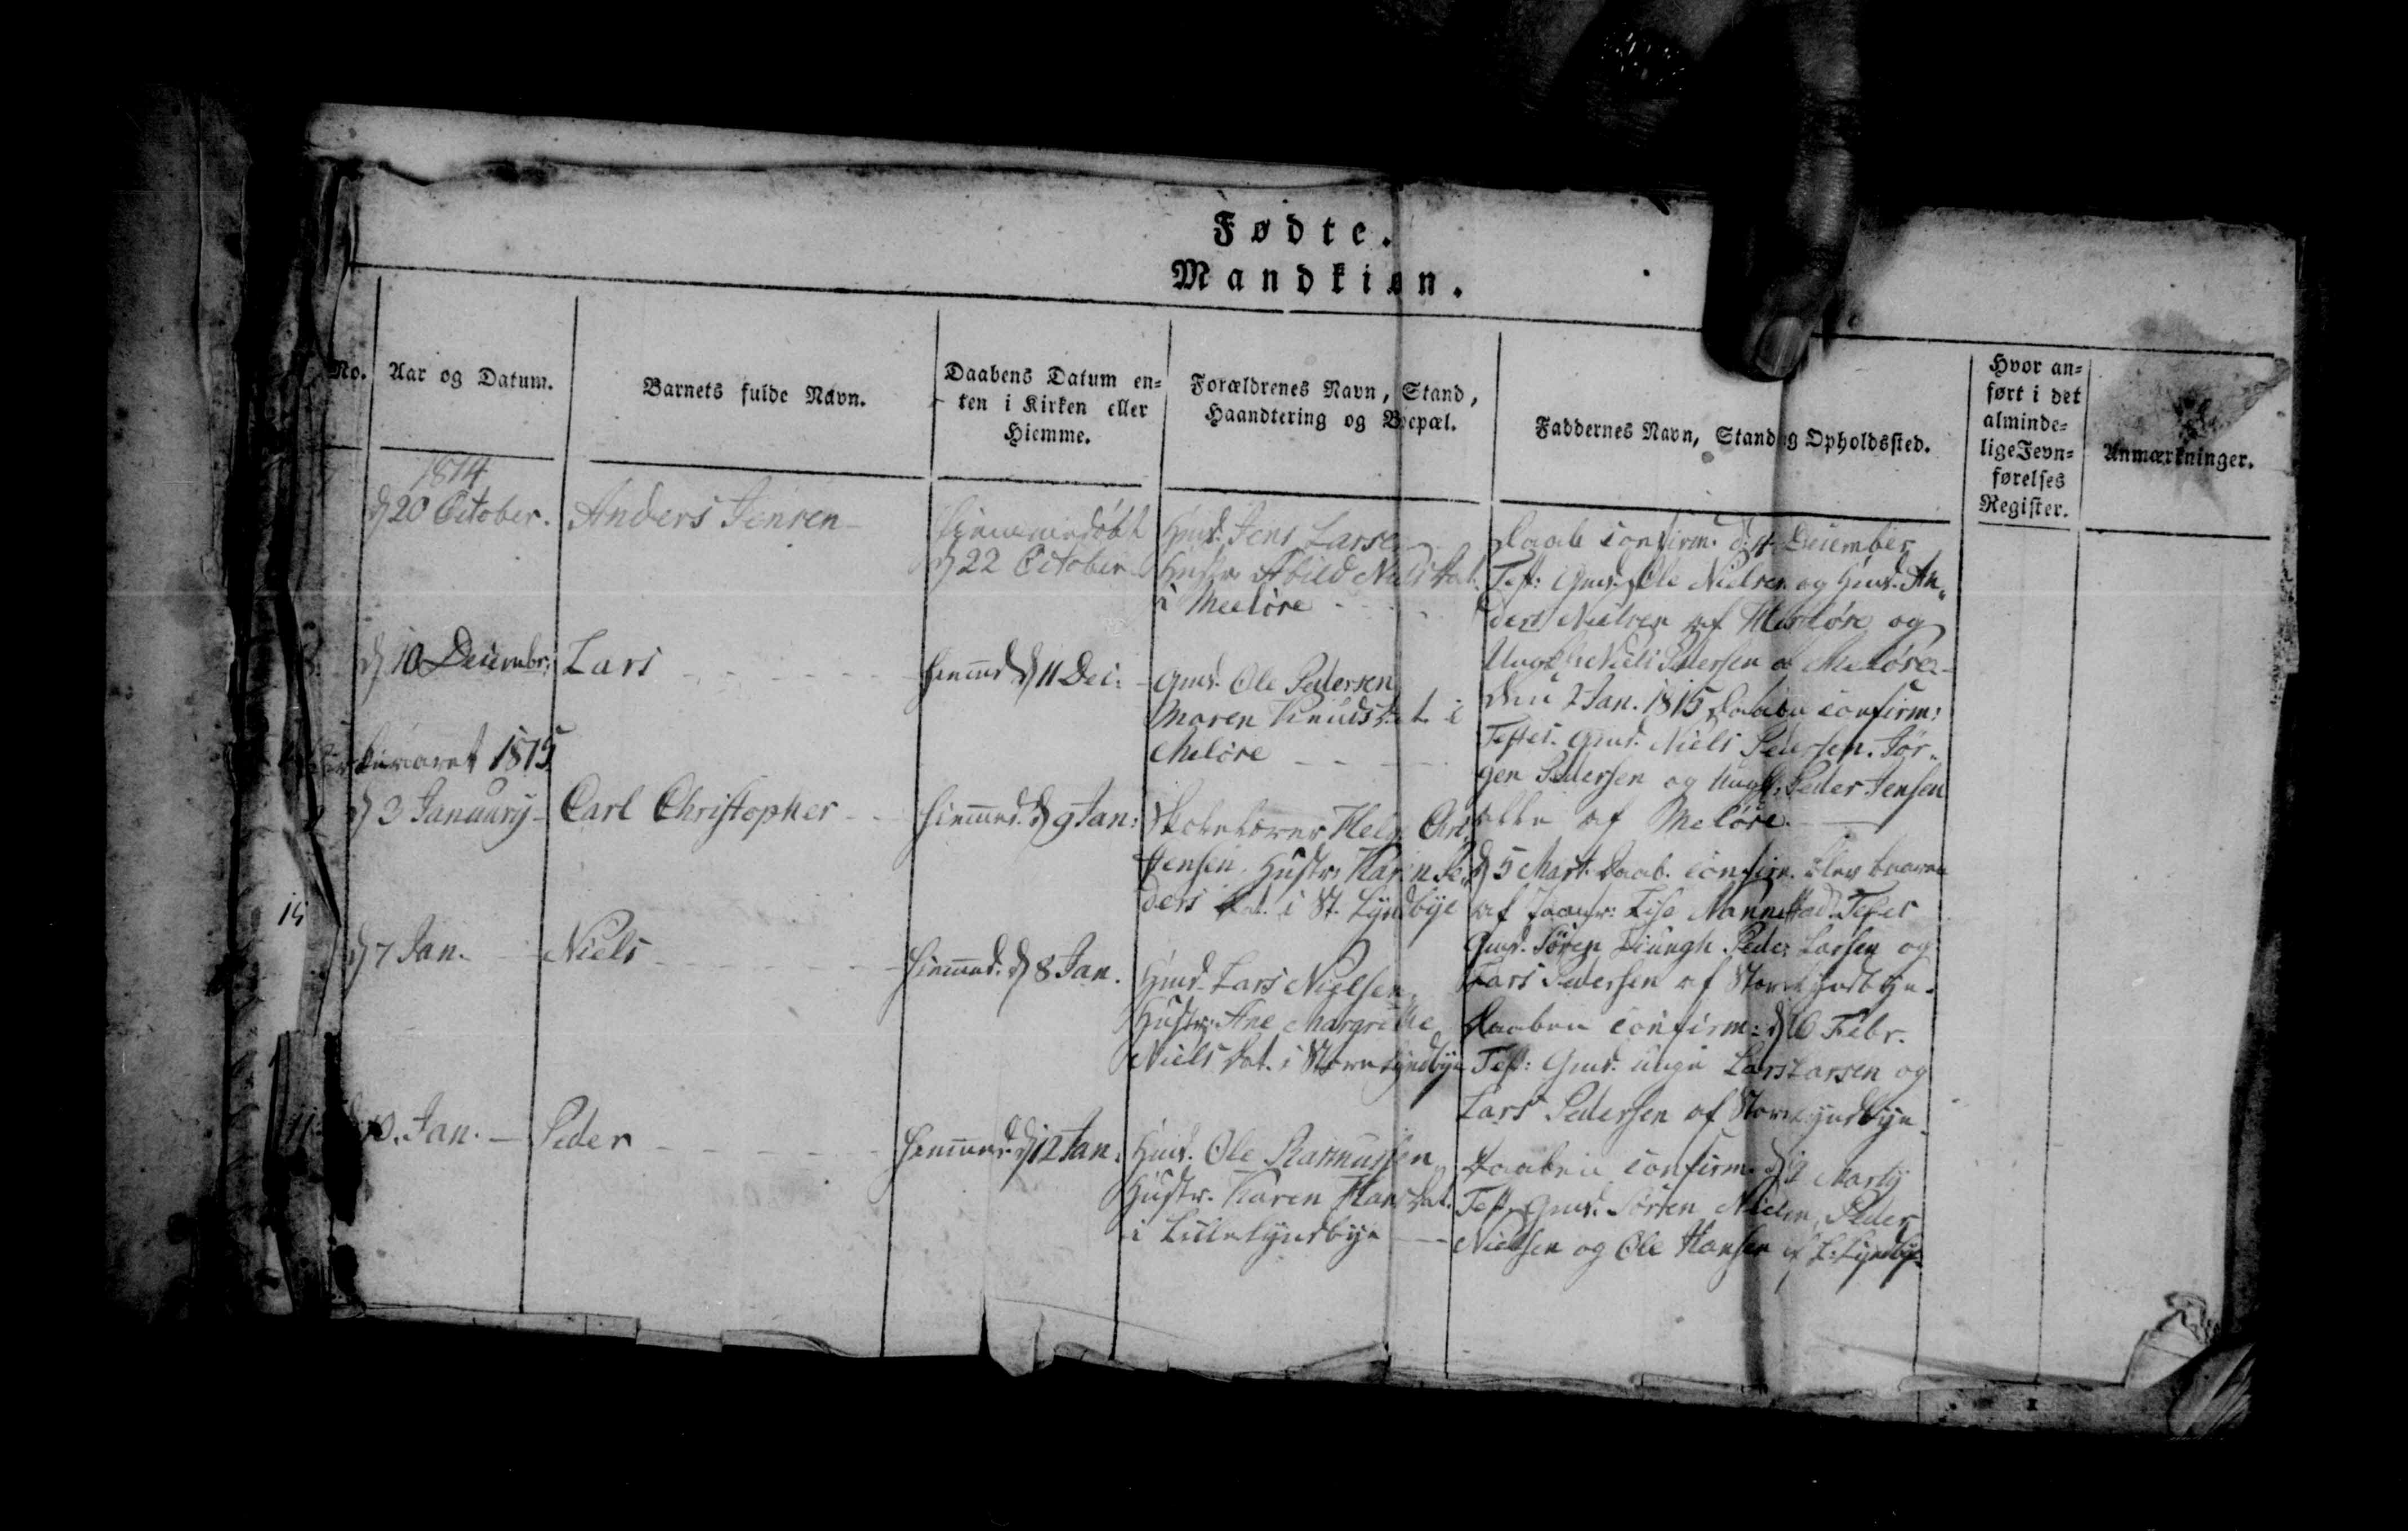 Fødte.
Mandkiøn.
No.
Aar og Datum.
Barnets fulde Navn.
Daabens Datum en-
ten i Kirken eller
Hiemme.
Forældrenes Navn, Stand,
Haandtering og Boepæl.
Faddernes Navn, Stand og Opholdssted.
Hvor an-
ført i det
alminde-
lige Jevn-
førelses
Register.
Anmærkninger.
1814
d 20 October.
Anders Jensen
Hjemmedøbt
d 22 October
Hmd. Jens Larsen
Hustr. Abild Niels Dat.
i Meeløse
Daab confirm. d: 4 December
Test: Gmd. Ole Nielsen og Hmd. An-
ders Nielsen af Meeløse og
Ungk. Niels Pedersen af Meløse
8.
d 10 Decembr.
Lars
Hiemd d 11 Dec:
Gmd. Ole Pedersen
Maren Knuds Dat. i
Meløse
Den 2 Jan. 1815 Daaben confirm:
Testes. Gmd. Niels Pedersen. Jør-
gen Pedersen og Ungk: Peder Jensen
alle af Meløse.
Kirkeaaret 1815
d 3 January
Carl Christopher
Hiemmd. d 9 Jan:
Skolelærer Chri-
stensen. Hustr. Karen Pe-
ders Dat. i St. Lyndbye
d 5 Mart. Daab. confirm. blev baaren
af Lise Testes
Gmd. Søren Peder Larsen og
Lars Pedersen af Store Lyndbye.
15
d 7 Jan.
Niels
Hiemmd. d 8 Jan.
Hmd. Lars Nielsen
Hustr: Ane Margrethe
Niels Dat. i Store Lyndbye
Daaben confirm: d Febr.
Test: Gmd. unge Lars Larsen og
Lars Pedersen af Store Lyndbye
11
10. Jan.
Peder
Hiemmd. d 12 Jan.
Hmd. Ole Rasmussen
Hustr. Karen Hans Dat.
i Lille Lyndbye
Daaben confirm. d 12 Marty
Test. Gmd. Sørren Nielsen, Peder
Nielsen og Ole Hansen af L: Lyndbye